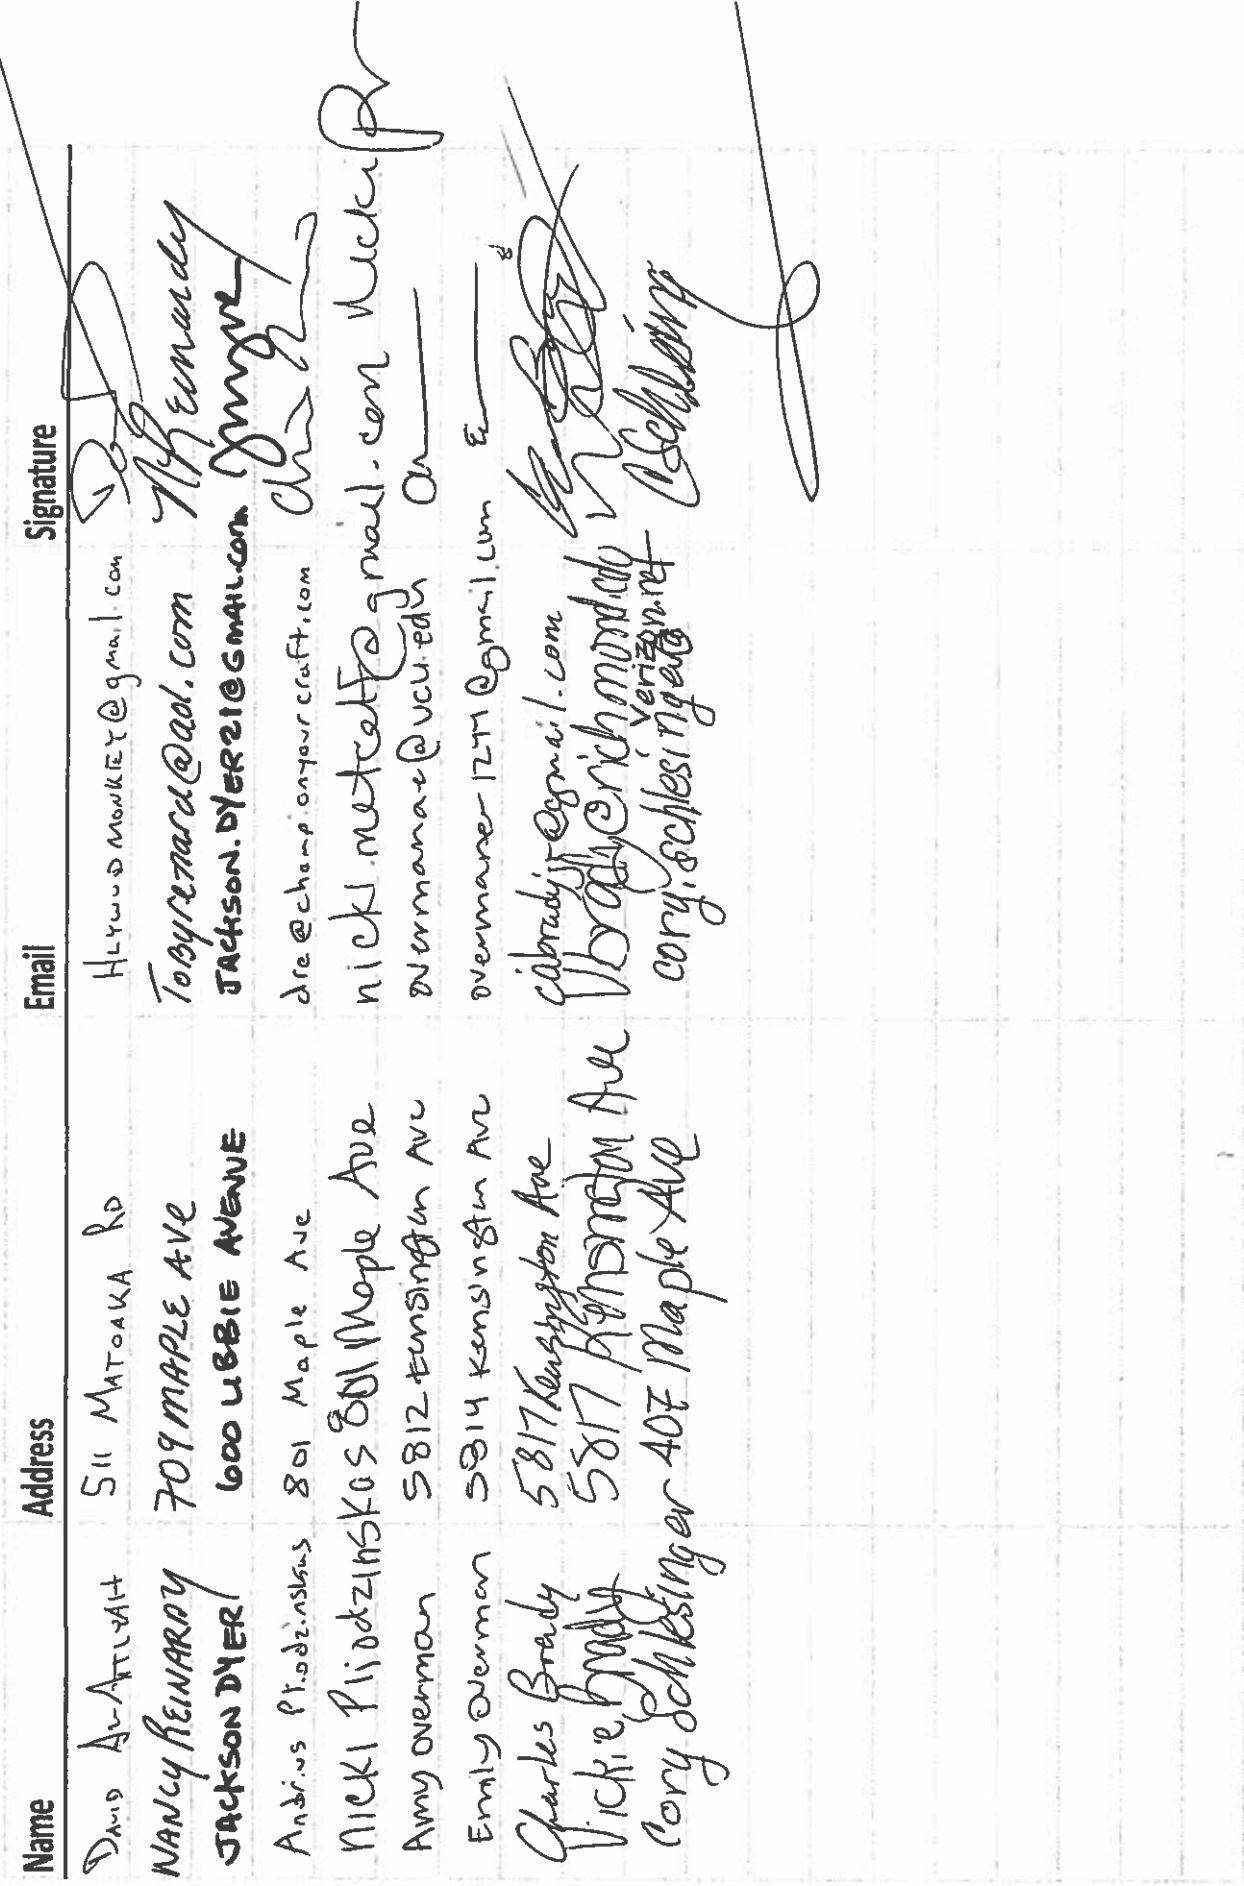 Name Address Email Signature
DAVID 511 MATOAKA RD HLYWUDMONKEY@gmail.com
NANCY REINARDY 709 MAPLE AVE Tobyrenard@aol.com
JACKSON DYER 600 LIBBIE AVENUE JACKSON.DYER21@GMAIL.COM
Andrius Pliodzinskas 801 Maple Ave dre@championyourcraft.com
NICKI Pliodzinskas 801 Maple Ave nicki.metcalf@gmail.com Nicki
Amy Overman 5812 Kensington Ave overmanae@vcu.edu
Emily Overman 5814 Kensington Ave overmaner1244@gmail.com
Charles Brady 5817 Kensington Ave cabradyjr@gmail.com
Vickie Brady 5817 Kensington Ave
Cory Schlesinger 407 Maple Ave cory.schlesinger@verizon.net